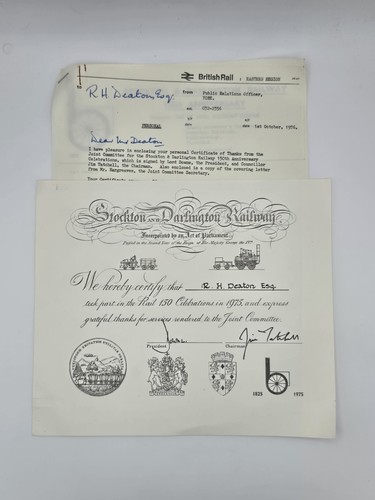 British Rail EASTERN REGION
R.H. Deaton, Esq.
from Public Relations Officer,
YORK.
ext
PERSONAL
date 1st October, 1975.
Dear Mr Deaton
I have pleasure in enclosing your personal Certificate of Thanks from the
Joint Committee for the Stockton & Darlington Railway 150th Anniversary
Celebrations, which is signed by Lord Downe, the President, and Councillor
Jim Tatchell, the Chairman. Also enclosed is a copy of the covering letter
from Mr. Hargreaves, the Joint Committee Secretary.
Stockton AND Darlington Railway.
Incorporated by an Act of Parliament.
Passed in the Second Year of the Reign of His Majesty George the IVth
We hereby certify that R H Deaton Esq
took part in the Rail 150 Celebrations in 1975, and express
grateful thanks for services rendered to the Joint Committee.
President Chairman
1825 1975